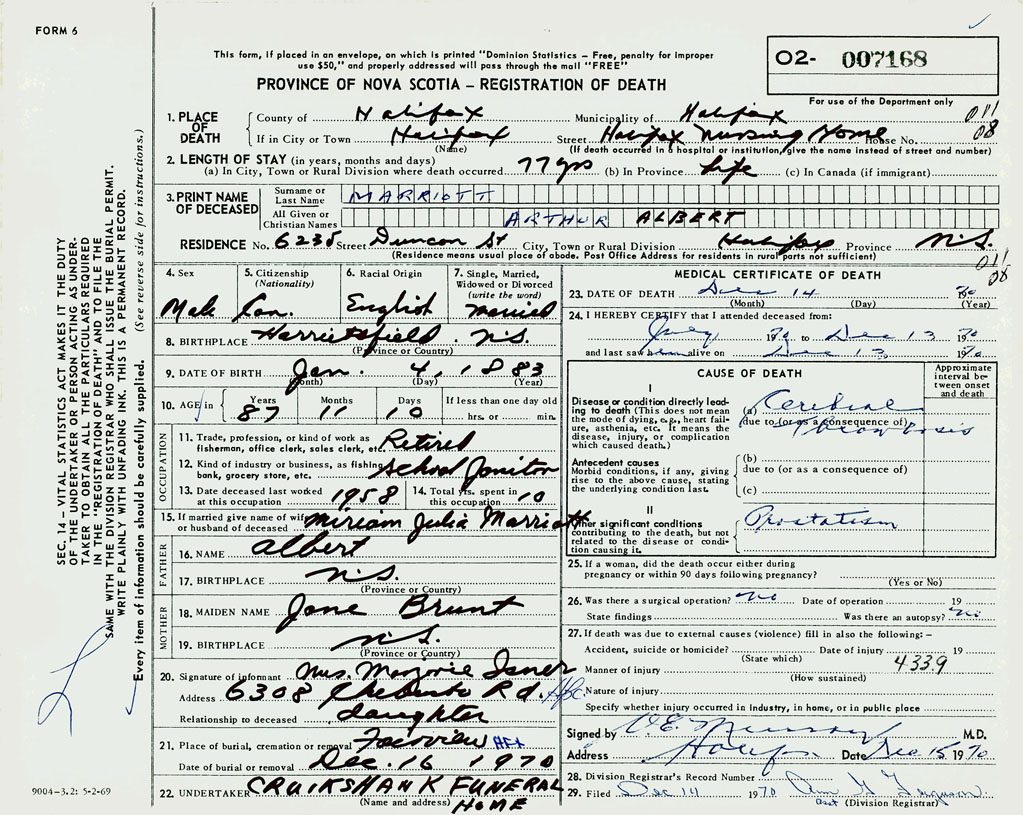 FORM 6
This form, if placed in an envelope, on which is printed "Dominion Statistics – Free, penalty for improper
use $50," and properly addressed will pass through the mail "FREE"
PROVINCE OF NOVA SCOTIA – REGISTRATION OF DEATH
02- 007168
For use of the Department only
1. PLACE OF DEATH County of Halifax Municipality of Halifax 011
If in City or Town Halifax Street Halifax Nursing Home House No. 08
(Name) (If death occurred in a hospital or institution, give the name instead of street and number)
2. LENGTH OF STAY (in years, months and days)
(a) In City, Town or Rural Division where death occurred 77 yrs (b) In Province Life (c) In Canada (if immigrant)
3. PRINT NAME OF DECEASED Surname or Last Name MARRIOTT
All Given or Christian Names ARTHUR ALBERT
RESIDENCE No. 6235 Street Duncan St City, Town or Rural Division Halifax Province N.S.
(Residence means usual place of abode. Post Office Address for residents in rural parts not sufficient)
011
08
4. Sex Male
5. Citizenship (Nationality) Can.
6. Racial Origin English
7. Single, Married, Widowed or Divorced (write the word) Married
8. BIRTHPLACE Harrietsfield N.S.
(Province or Country)
9. DATE OF BIRTH Jan. 4, 1883
(Month) (Day) (Year)
10. AGE in Years 87 Months 11 Days 10 If less than one day old hrs. or min.
OCCUPATION
11. Trade, profession, or kind of work as fisherman, office clerk, sales clerk, etc. Retired
12. Kind of industry or business, as fishing, bank, grocery store, etc. School Janitor
13. Date deceased last worked at this occupation 1958
14. Total yrs. spent in this occupation 10
15. If married give name of wife or husband of deceased Miriam Julia Marriott
FATHER
16. NAME Albert
17. BIRTHPLACE N.S.
(Province or Country)
MOTHER
18. MAIDEN NAME Jane Brunt
19. BIRTHPLACE N.S.
(Province or Country)
20. Signature of informant Mrs. Marjorie Isnor
Address 6308 Chebucto Rd. Hfx
Relationship to deceased daughter
21. Place of burial, cremation or removal Fairview HFX
Date of burial or removal Dec. 16 1970
22. UNDERTAKER CRUIKSHANK FUNERAL
(Name and address) HOME
MEDICAL CERTIFICATE OF DEATH
23. DATE OF DEATH Dec 14 1970
(Month) (Day) (Year)
24. I HEREBY CERTIFY that I attended deceased from:
July 1970 to Dec 13 1970
and last saw him alive on Dec 13 1970
CAUSE OF DEATH
Approximate interval between onset and death
I
Disease or condition directly leading to death (This does not mean the mode of dying, e.g., heart failure, asthenia, etc. It means the disease, injury, or complication which caused death.)
(a) Cerebral
due to (or as a consequence of)
thrombosis
Antecedent causes
Morbid conditions, if any, giving rise to the above cause, stating the underlying condition last.
(b)
due to (or as a consequence of)
(c)
II
Other significant conditions contributing to the death, but not related to the disease or condition causing it.
Prostatism
25. If a woman, did the death occur either during pregnancy or within 90 days following pregnancy?
(Yes or No)
26. Was there a surgical operation? No Date of operation 19
State findings Was there an autopsy? No
27. If death was due to external causes (violence) fill in also the following: –
Accident, suicide or homicide? Date of injury 19
(State which) 4339
Manner of injury
(How sustained)
Nature of injury
Specify whether injury occurred in industry, in home, or in public place
Signed by M.D.
Address Halifax Date Dec 15 1970
28. Division Registrar's Record Number
29. Filed Dec 14 1970 Ann G Ferguson
Asst (Division Registrar)
SEC. 14 – VITAL STATISTICS ACT MAKES IT THE DUTY
OF THE UNDERTAKER OR PERSON ACTING AS UNDER-
TAKER TO OBTAIN ALL THE PARTICULARS REQUIRED
IN THE "REGISTRATION OF DEATH" AND TO FILE THE
SAME WITH THE DIVISION REGISTRAR WHO SHALL ISSUE THE BURIAL PERMIT.
WRITE PLAINLY WITH UNFADING INK. THIS IS A PERMANENT RECORD.
Every item of information should be carefully supplied. (See reverse side for instructions.)
9004-3.2: 5-2-69